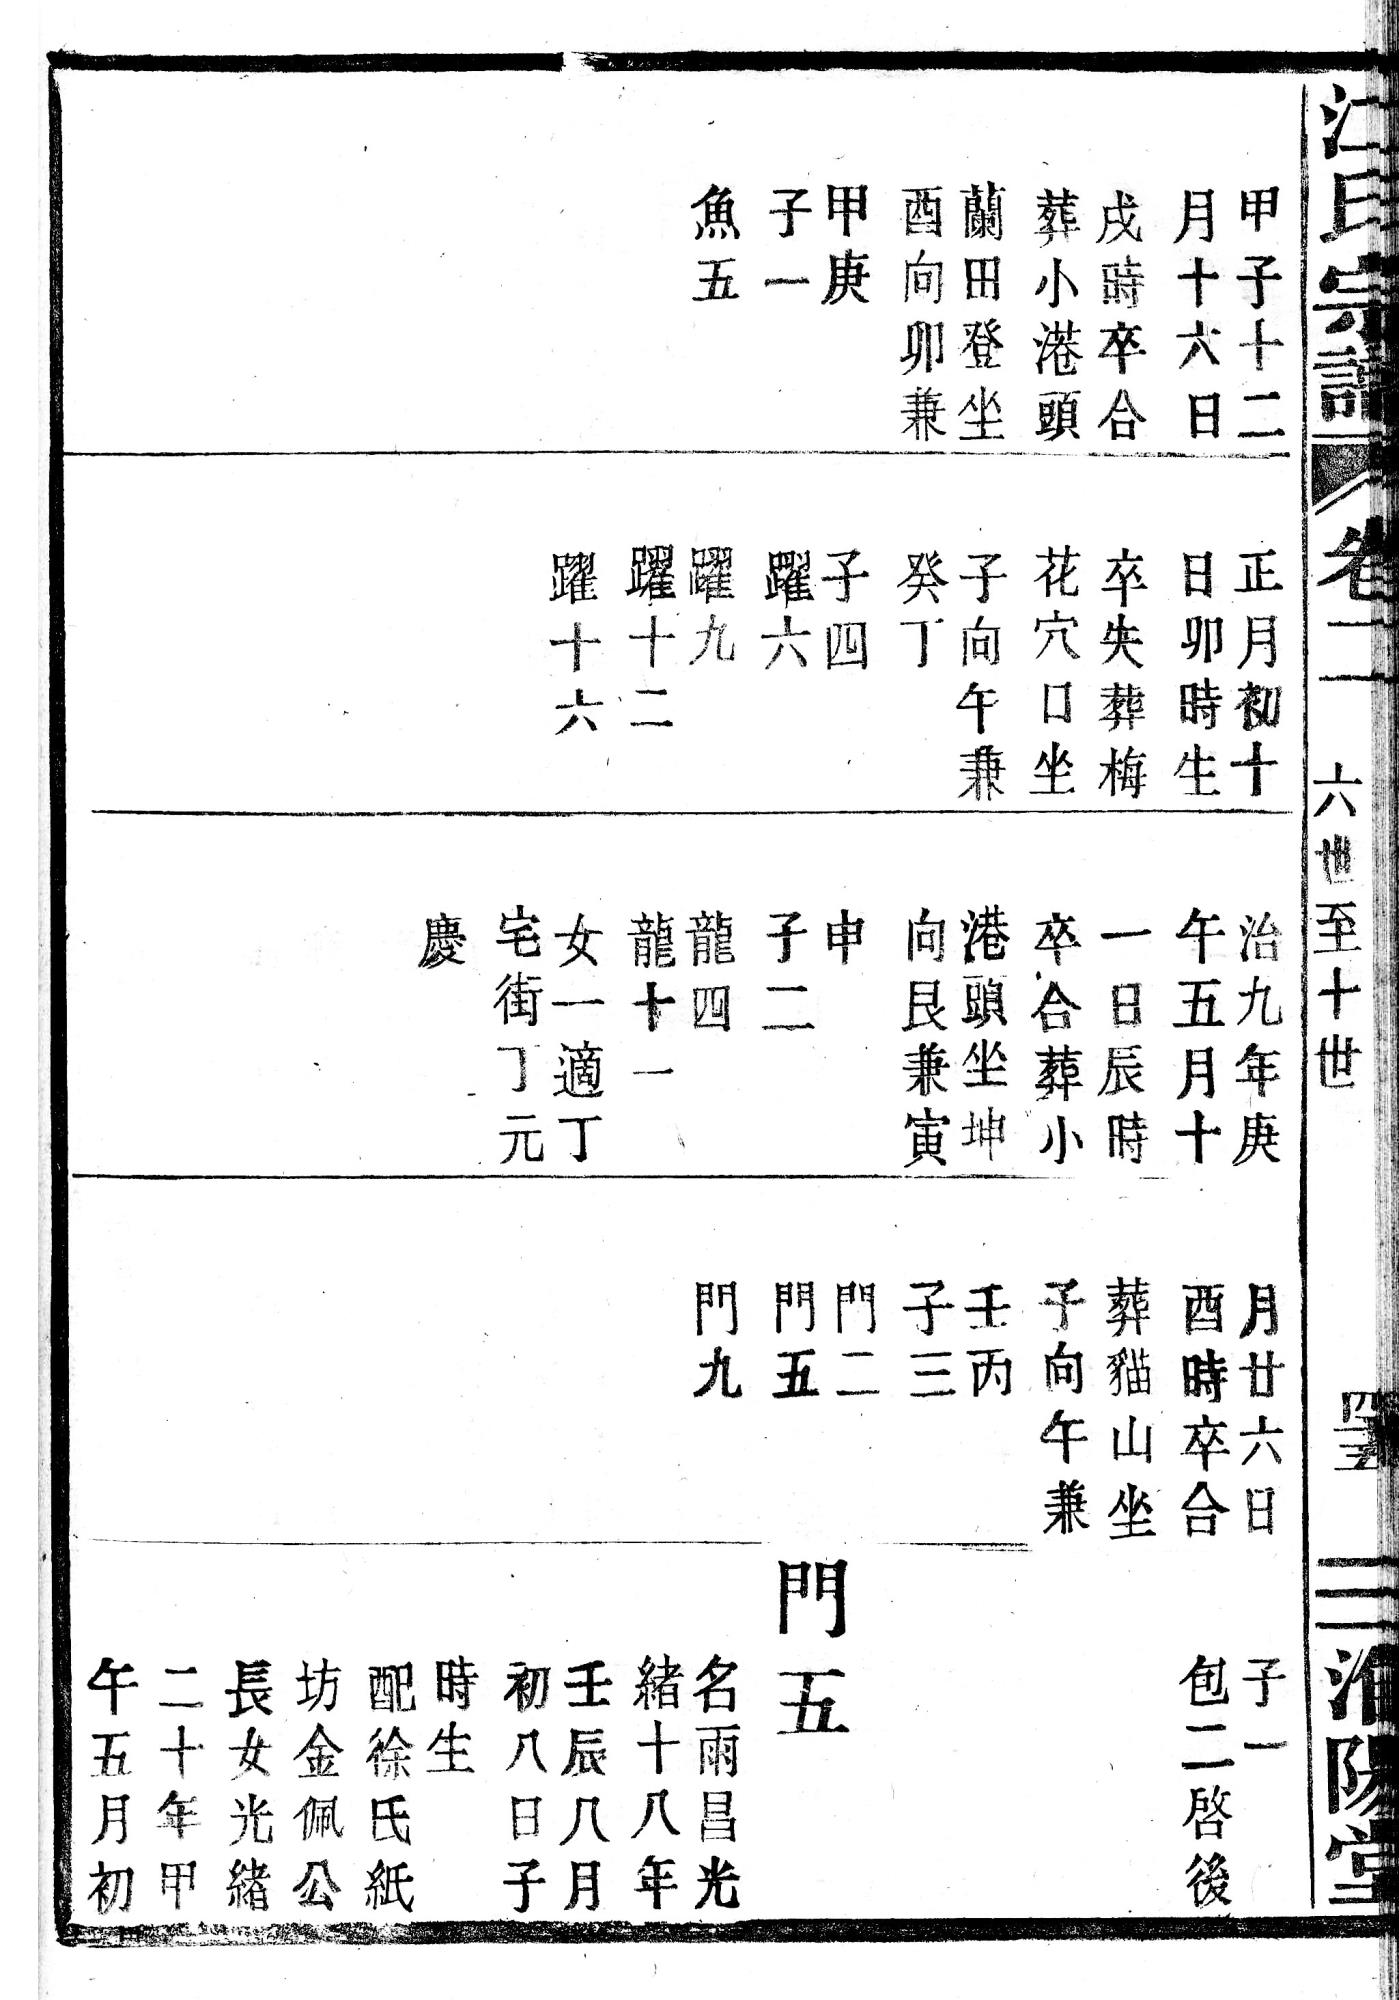 江氏宗譜
卷二
六世至十世
四十五
淮陽堂
甲子十二
月十六日
戌時卒合
葬小港頭
蘭田登坐
酉向卯兼
甲庚
子一
魚五
正月初十
日卯時生
卒失葬梅
花穴口坐
子向午兼
癸丁
子四
躍六
躍九
躍十二
躍十六
治九年庚
午五月十
一日辰時
卒合葬小
港頭坐坤
向艮兼寅
申
子二
龍四
龍十一
女一適丁
宅街丁元
慶
月廿六日
酉時卒合
葬貓山坐
子向午兼
壬丙
子三
門二
門五
門九
子一
包二啓後
門五
名雨昌光
緒十八年
壬辰八月
初八日子
時生
配徐氏紙
坊金佩公
長女光緒
二十年甲
午五月初